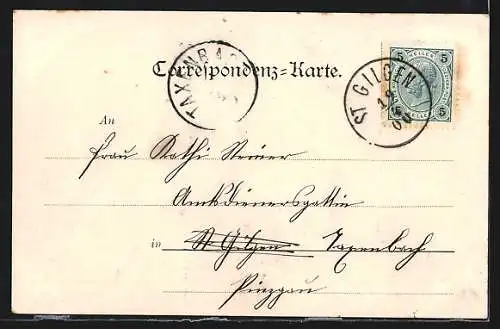 TAXENBACH
5 HELLER 5
ST GILGEN
Correspondenz-Karte.
5 5
An
Frau Kathi Steiner
Amtsdienersgattin
in St Gilgen Taxenbach
Pinzgau